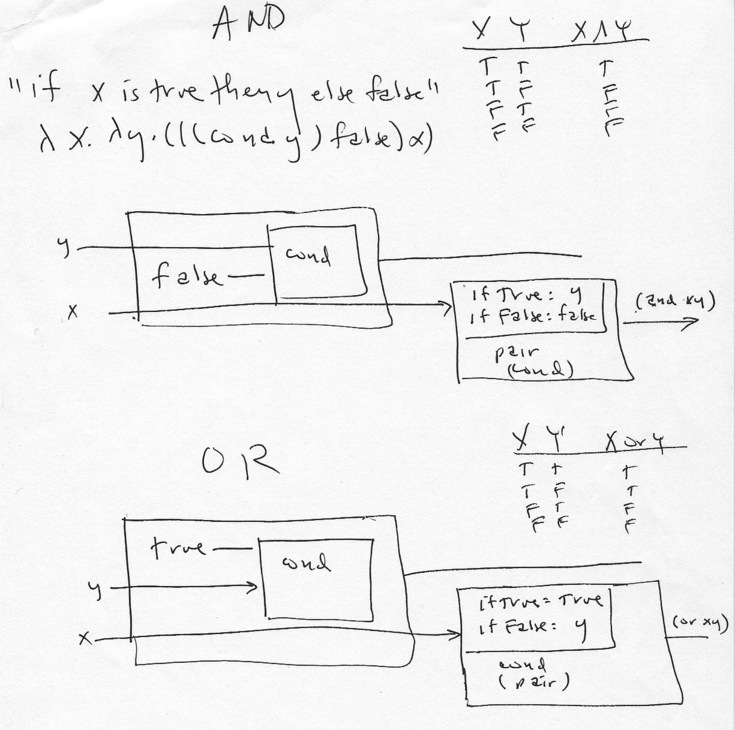 AND
X Y X ∧ Y
T T T
T F F
F T F
F F F
"if x is true then y else false"
λ x. λy.(((cond y) false) x)
y
cond
false
x
if True: y
if False: false
(and xy)
pair
(cond)
OR
X Y X or Y
T T T
T F T
F T T
F F F
true
cond
y
x
if True = True
if False: y
(or xy)
cond
(pair)